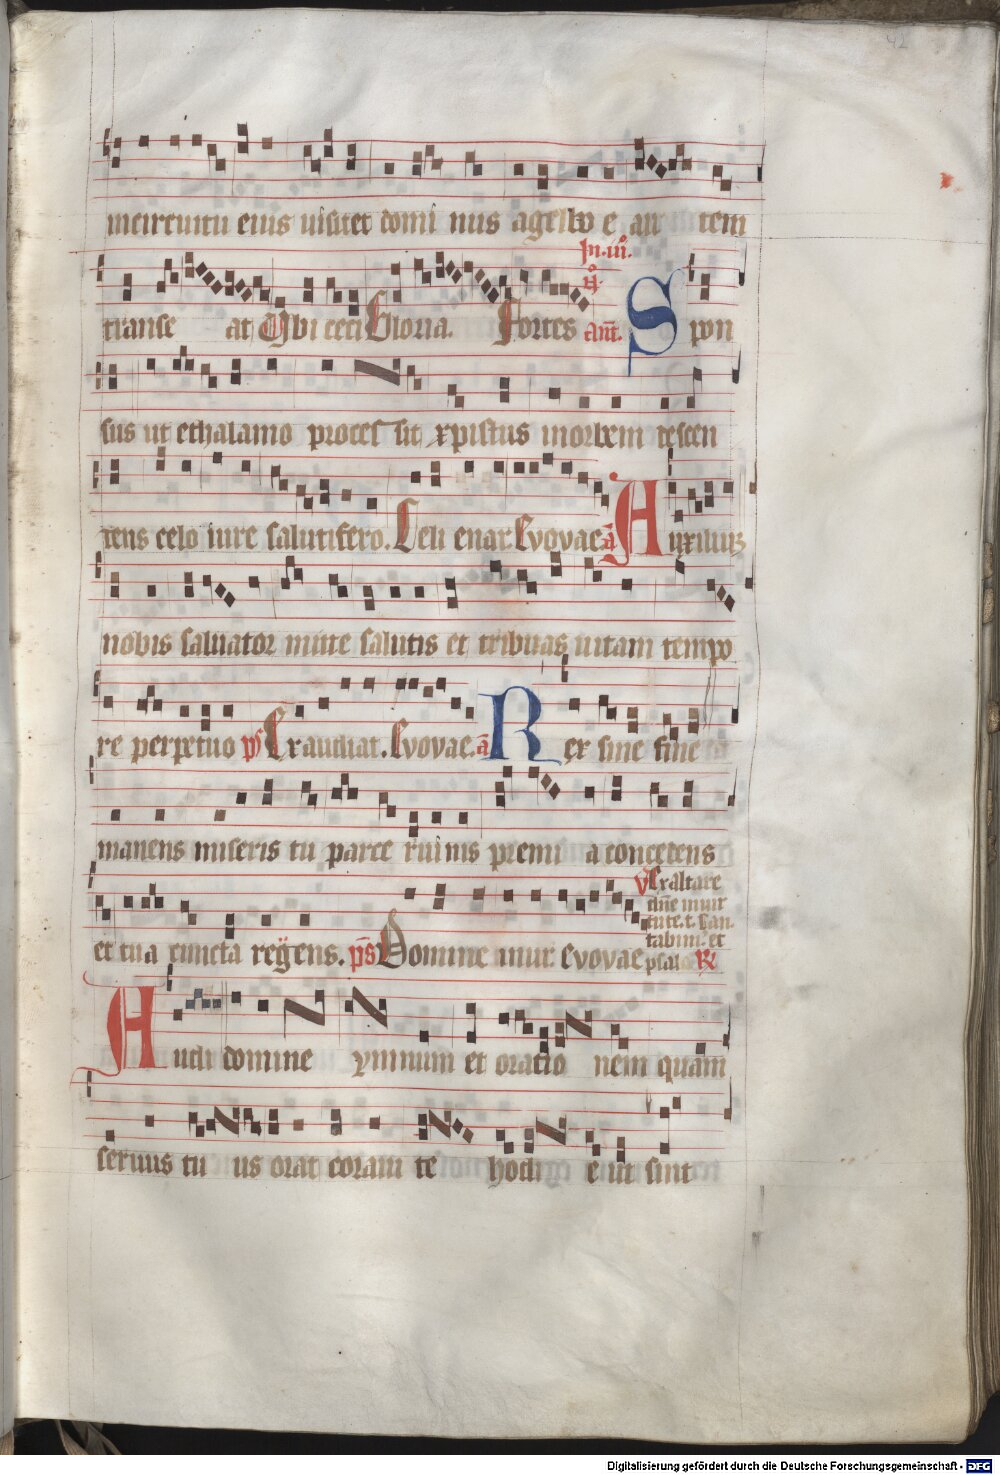 42
incircuitu eius uisitet domi nus agellos e au tem
In.iii.
N.
transe at Vbi ceci Gloria. Fortes ant. Spon
sus ut ethalamo proces sit xpistus inorbem descen
dens celo iure salutifero. Celi enar. Evovae a Auxilium
nobis saluator mitte salutis et tribuas uitam tempo
re perpetuo ps Exaudiat. Evovae. a Rex sine fine
manens miseris tu parce ruinis premi a concedens
V Exaltare
dne in uir
tute. t. Can.
et tua cuncta regens. ps Domine in uir. Evovae tabim. et
psal R
Audi domine ymnum et oratio nem quam
seruus tu us orat coram te hodi e ut sint
Digitalisierung gefördert durch die Deutsche Forschungsgemeinschaft - DFG